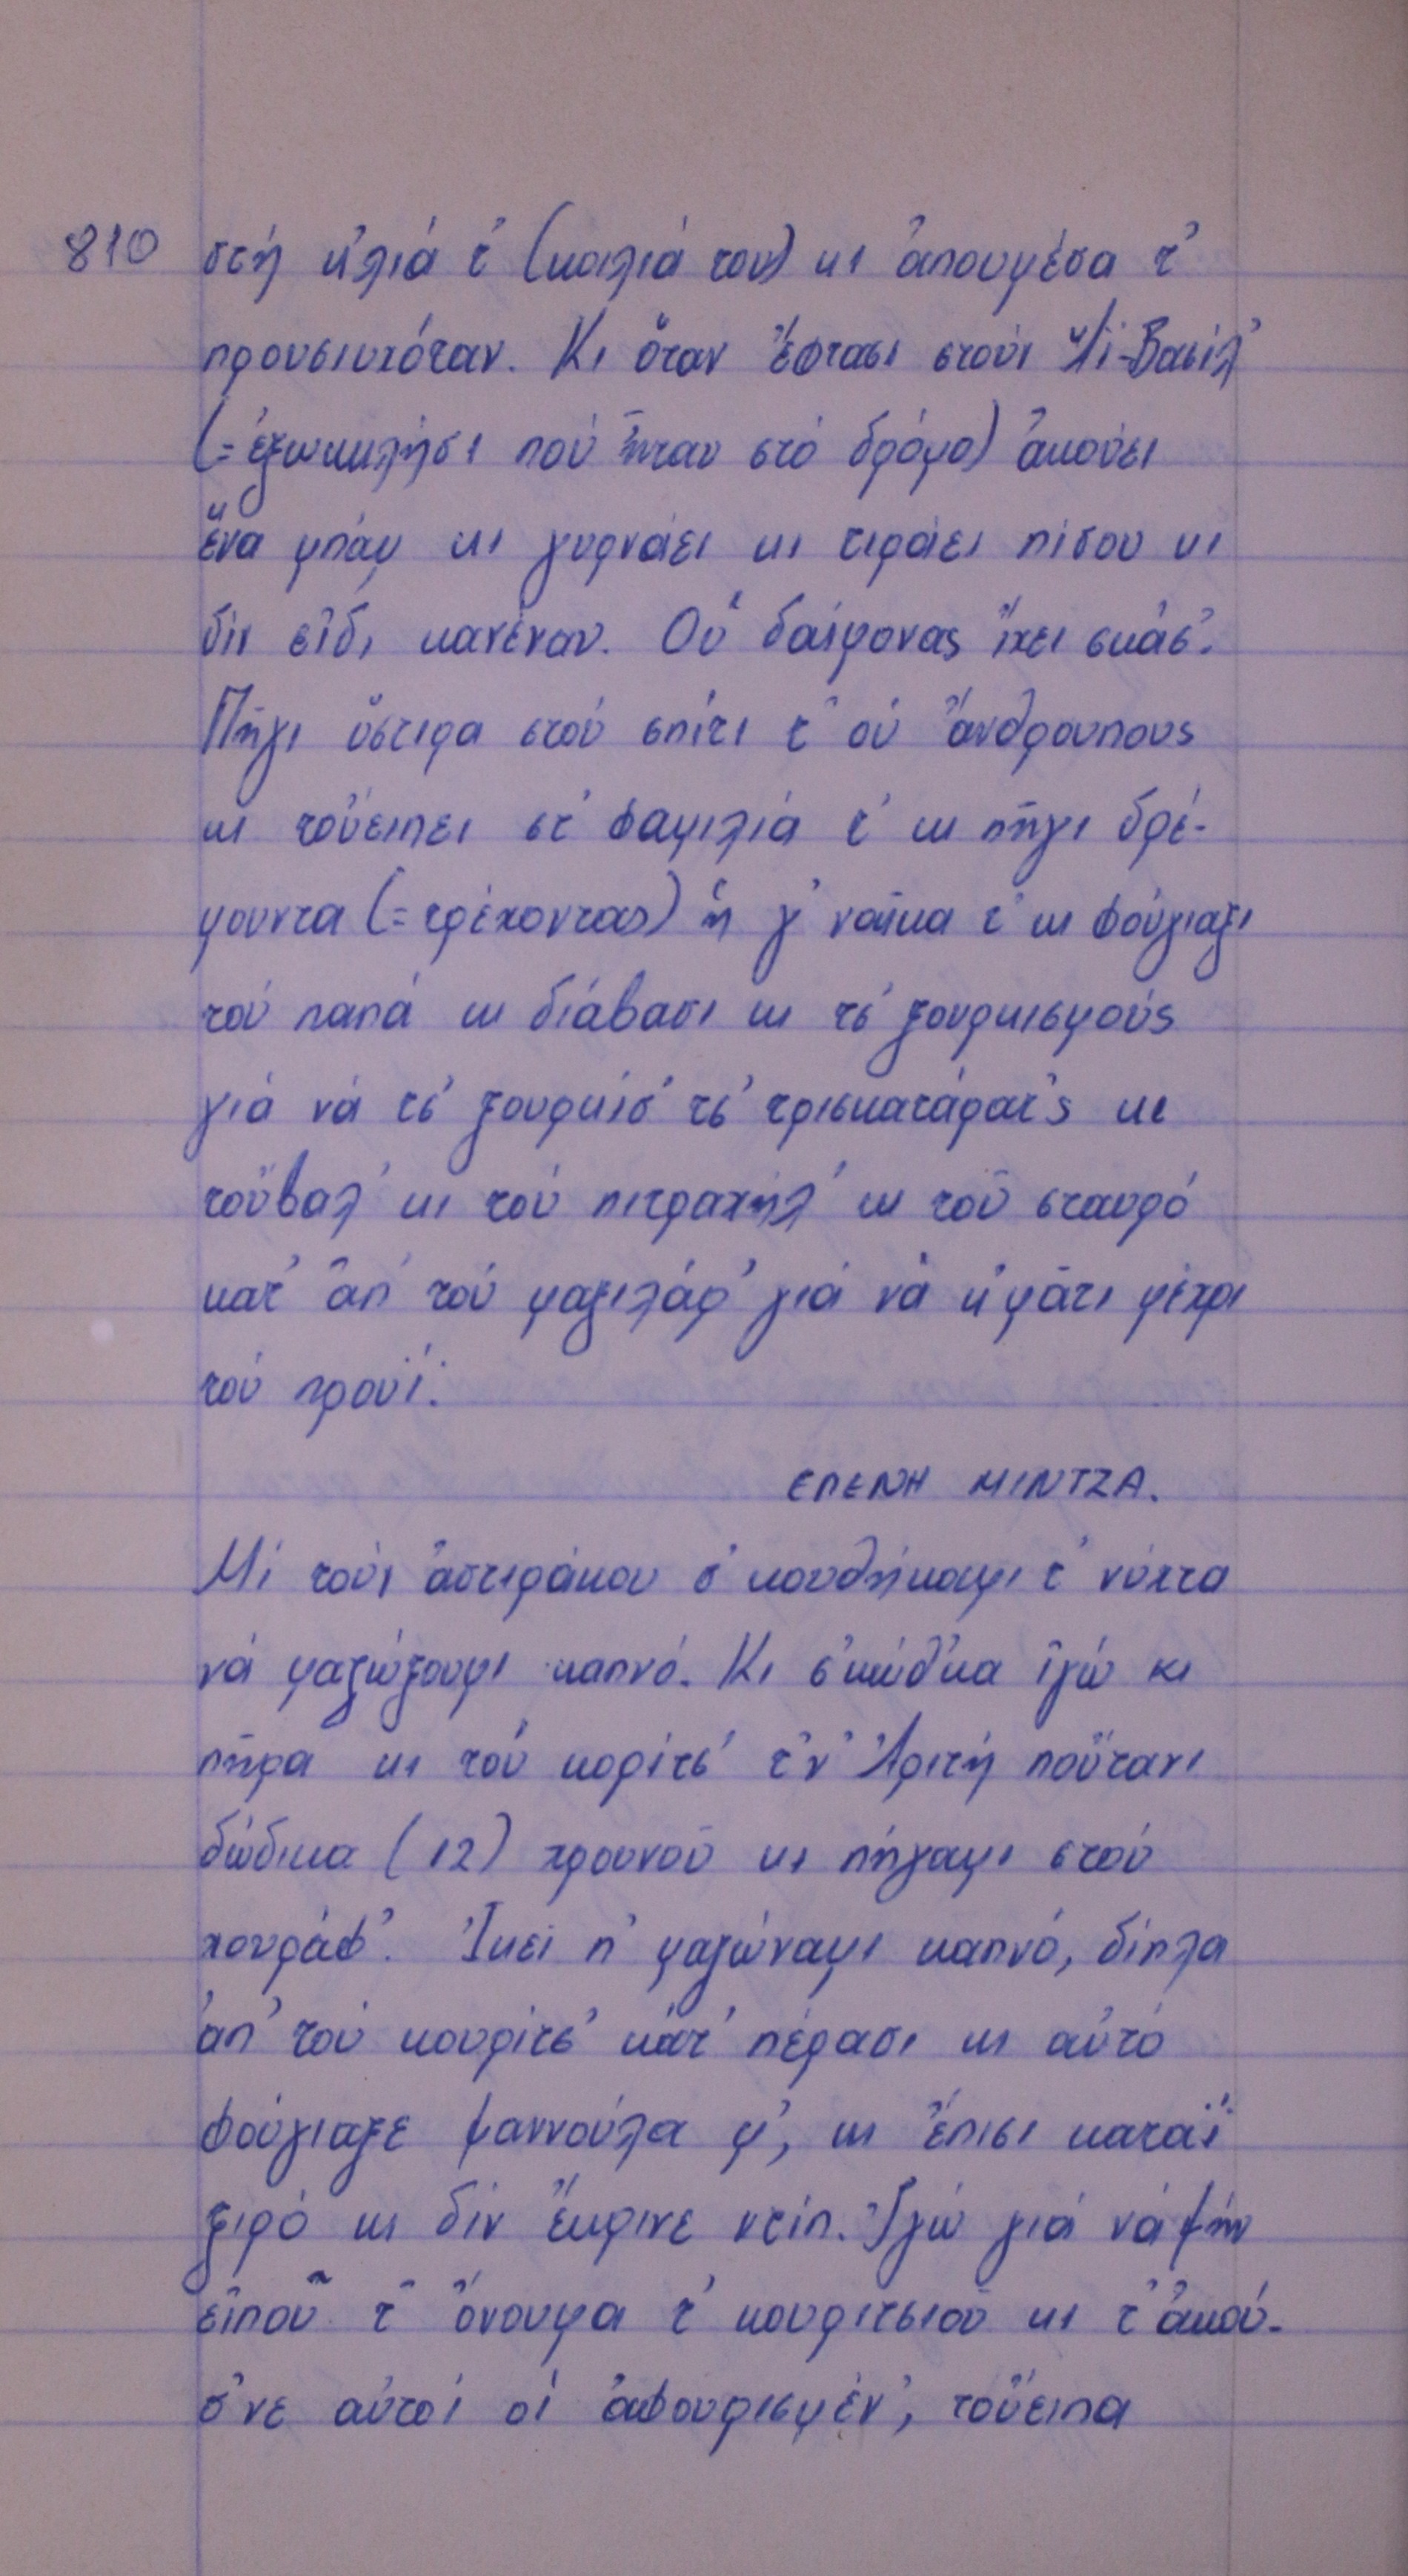 810
στή κ'λιά τ' (κοιλιά του) κι ἀπουμέσα τ'
προυσιυχόταν. Κι ὅταν ἔφτασι στούν Ἅϊ-Βασίλ'
(=ἐξωκκλήσι πού ἦταν στό δρόμο) ἀκούει
ἕνα μπάμ κι γυρνάει κι τιράει πίσου κι
δίν εἶδι κανέναν. Οὑ δαίμονας ἴχει σκάσ'.
Πῆγι ὕστιρα στού σπίτι τ' οὑ ἄνθρουπους
κι τοὔειπει στ' φαμιλιά τ' κι πῆγι δρέ-
μουντα (=τρέχοντας) ἡ γ'ναῖκα τ' κι φούγιαξι
τού παπά κι διάβασι κι τσ' ξουρκισμούς
γιά νά τσ' ξουρκίσ' τσ' τρισκατάρατ'ς κι
τοὔβαλ' κι τού πιτραχήλ' κι τοῦ σταυρό
κατ' ἀπ' τού μαξιλάρ' γιά νά κ'μᾶτι μέχρι
τού προυΐ.
ΕΛΕΝΗ ΜΙΝΤΖΑ.
Μί τούν ἀστιράκου σ'κουθήκαμι τ' νύχτα
νά μαζώξουμι καπνό. Κι σ'κώθ'κα ἰγώ κι
πῆρα κι τού κορίτσ' τ'ν Ἀριτή ποὔτανι
δώδικα (12) χρουνοῦ κι πήγαμι στού
χουράφ'. Ἰκεί π' μαζώναμι καπνό, δίπλα
ἀπ' τού κουρίτσ' κάτ' πέρασι κι αὐτό
φούγιαξε μαννούλα μ', κι ἔπισι καταΐ
ξιρό κι δίν ἔκρινε ντίπ. Ἰγώ γιά νά μήν
εἰποῦ τ' ὄνουμα τ' κουριτσιοῦ κι τ' ἀκού-
σ'νε αὐτοί οἱ ἀφουρισμέν', τοὔειπα